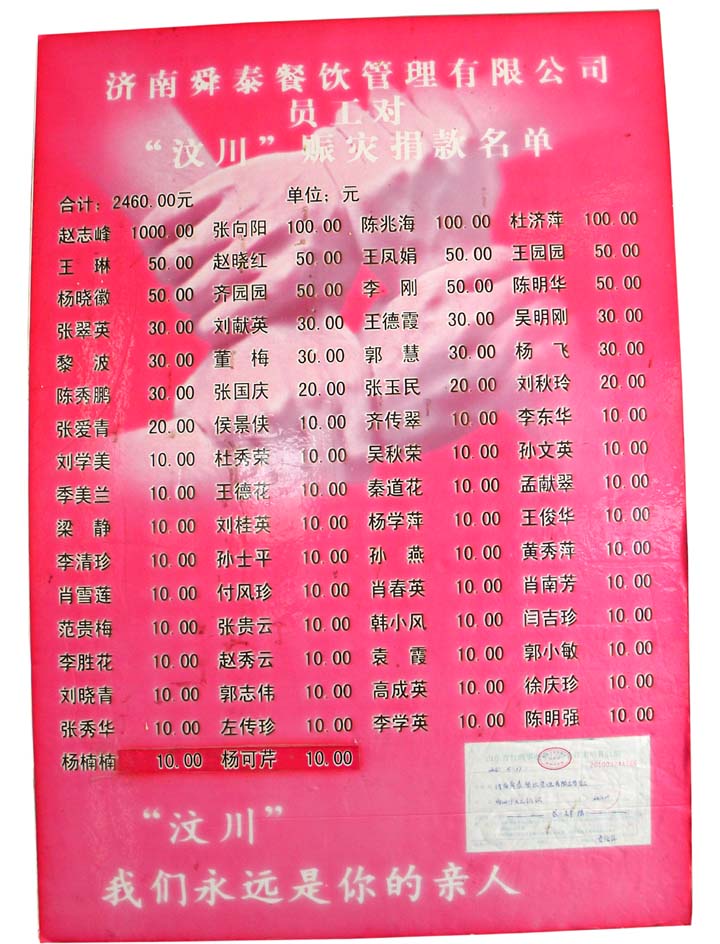 济南舜泰餐饮管理有限公司
员工对
“汶川”赈灾捐款名单
合计：2460.00元 单位：元
赵志峰 1000.00 张向阳 100.00 陈兆海 100.00 杜济萍 100.00
王 琳 50.00 赵晓红 50.00 王凤娟 50.00 王园园 50.00
杨晓徽 50.00 齐园园 50.00 李 刚 50.00 陈明华 50.00
张翠英 30.00 刘献英 30.00 王德霞 30.00 吴明刚 30.00
黎 波 30.00 董 梅 30.00 郭 慧 30.00 杨 飞 30.00
陈秀鹏 30.00 张国庆 20.00 张玉民 20.00 刘秋玲 20.00
张爱青 20.00 侯景侠 10.00 齐传翠 10.00 李东华 10.00
刘学美 10.00 杜秀荣 10.00 吴秋荣 10.00 孙文英 10.00
季美兰 10.00 王德花 10.00 秦道花 10.00 孟献翠 10.00
梁 静 10.00 刘桂英 10.00 杨学萍 10.00 王俊华 10.00
李清珍 10.00 孙士平 10.00 孙 燕 10.00 黄秀萍 10.00
肖雪莲 10.00 付风珍 10.00 肖春英 10.00 肖南芳 10.00
范贵梅 10.00 张贵云 10.00 韩小风 10.00 闫吉珍 10.00
李胜花 10.00 赵秀云 10.00 袁 霞 10.00 郭小敏 10.00
刘晓青 10.00 郭志伟 10.00 高成英 10.00 徐庆珍 10.00
张秀华 10.00 左传珍 10.00 李学英 10.00 陈明强 10.00
杨楠楠 10.00 杨可芹 10.00
“汶川”
我们永远是你的亲人